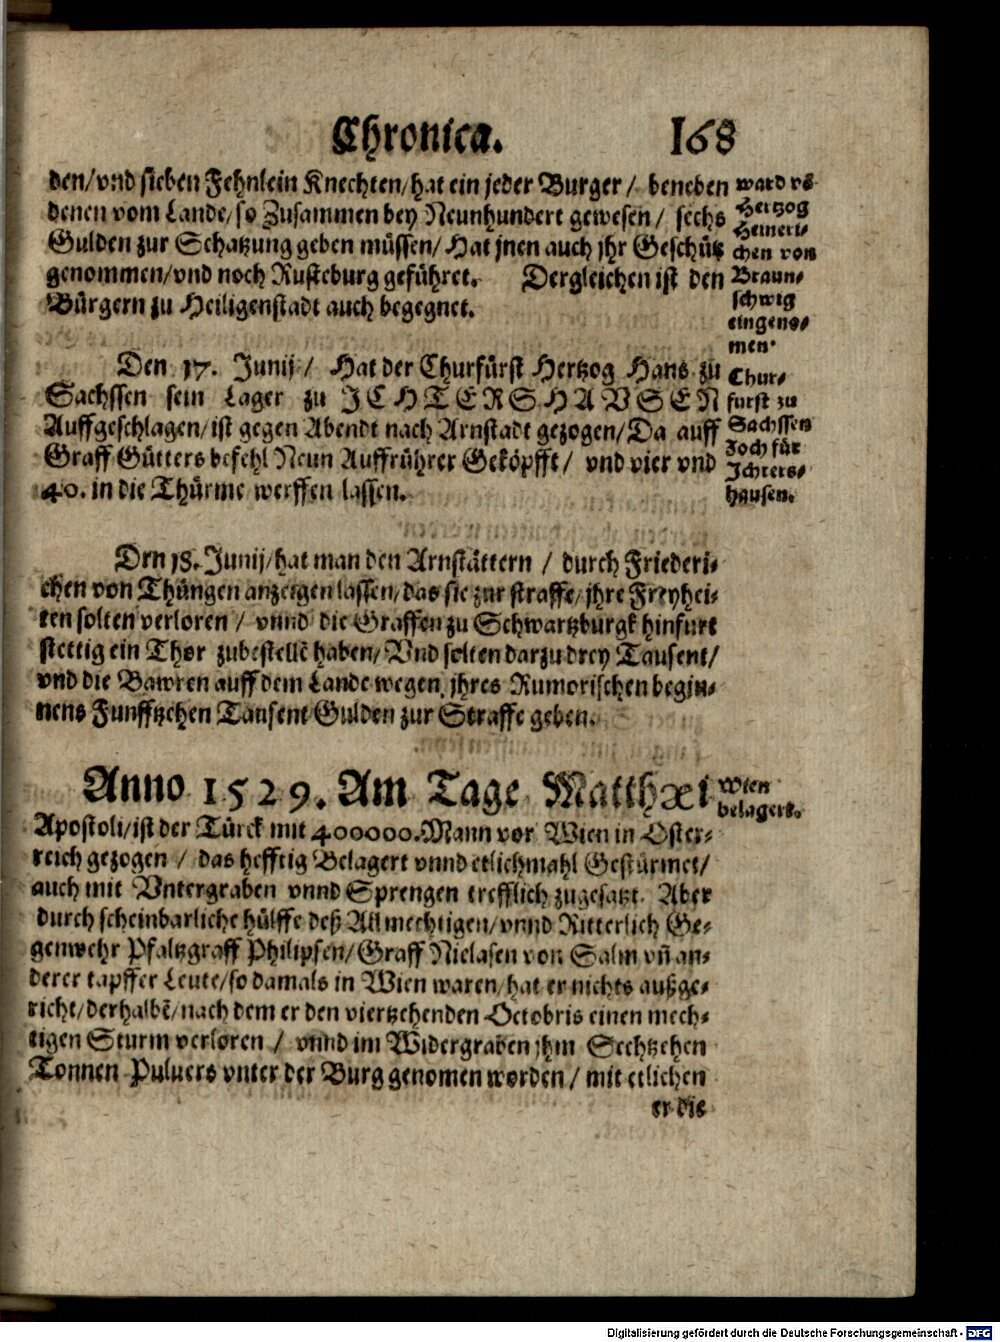 Chronica. 168
den/vnd sieben Fehnlein Knechten/hat ein jeder Burger/ beneben
denen vom Lande/so Zusammen bey Neunhundert gewesen/ sechs
Gulden zur Schatzung geben müssen/ Hat jnen auch jhr Geschütz
genommen/vnd noch Rusteburg geführet. Dergleichen ist den
Bürgern zu Heiligenstadt auch begegnet.
ward võ
Hertzog
Heineri-
chen von
Braun-
schwig
eingeno-
men.
Den 17. Junij/ Hat der Churfürst Hertzog Hans zu
Sachssen sein Lager zu JCHTERSHAVSEN
Auffgeschlagen/ist gegen Abendt nach Arnstadt gezogen/Da auff
Graff Gütters befehl Neun Auffrührer Geköpfft/ vnd vier vnd
40. in die Thürme werffen lassen.
Chur-
furst zu
Sachssen
zoch für
Jchters-
hausen.
Den 18. Junij/hat man den Arnstättern/ durch Friederi-
chen von Thüngen anzeigen lassen/das sie zur straffe/jhre Freyhei-
ten solten verloren/ vnnd die Graffen zu Schwartzburgk hinfurt
stettig ein Thor zubestellẽ haben/Vnd solten darzu drey Tausent/
vnd die Bawren auff dem Lande wegen jhres Rumorischen begin-
nens Funfftzehen Tausent Gulden zur Straffe geben.
Anno 1529. Am Tage Matthæi
Apostoli/ist der Türck mit 400000.Mann vor Wien in Oster-
reich gezogen/ das hefftig Belagert vnnd etlichmahl Gestürmet/
auch mit Vntergraben vnnd Sprengen trefflich zugesatzt. Aber
durch scheinbarliche hülffe deß Allmechtigen/vnnd Ritterlich Ge-
genwehr Pfaltzgraff Philipsen/Graff Niclasen von Salm vñ an-
derer tapffer Leute/so damals in Wien waren/hat er nichts außge-
richt/derhalbẽ/nach dem er den viertzehenden Octobris einen mech-
tigen Sturm verloren/ vnnd im Widergraben jhm Sechtzehen
Tonnen Puluers vnter der Burg genomen worden/ mit etlichen
er die
Wien
belagert.
Digitalisierung gefördert durch die Deutsche Forschungsgemeinschaft - DFG